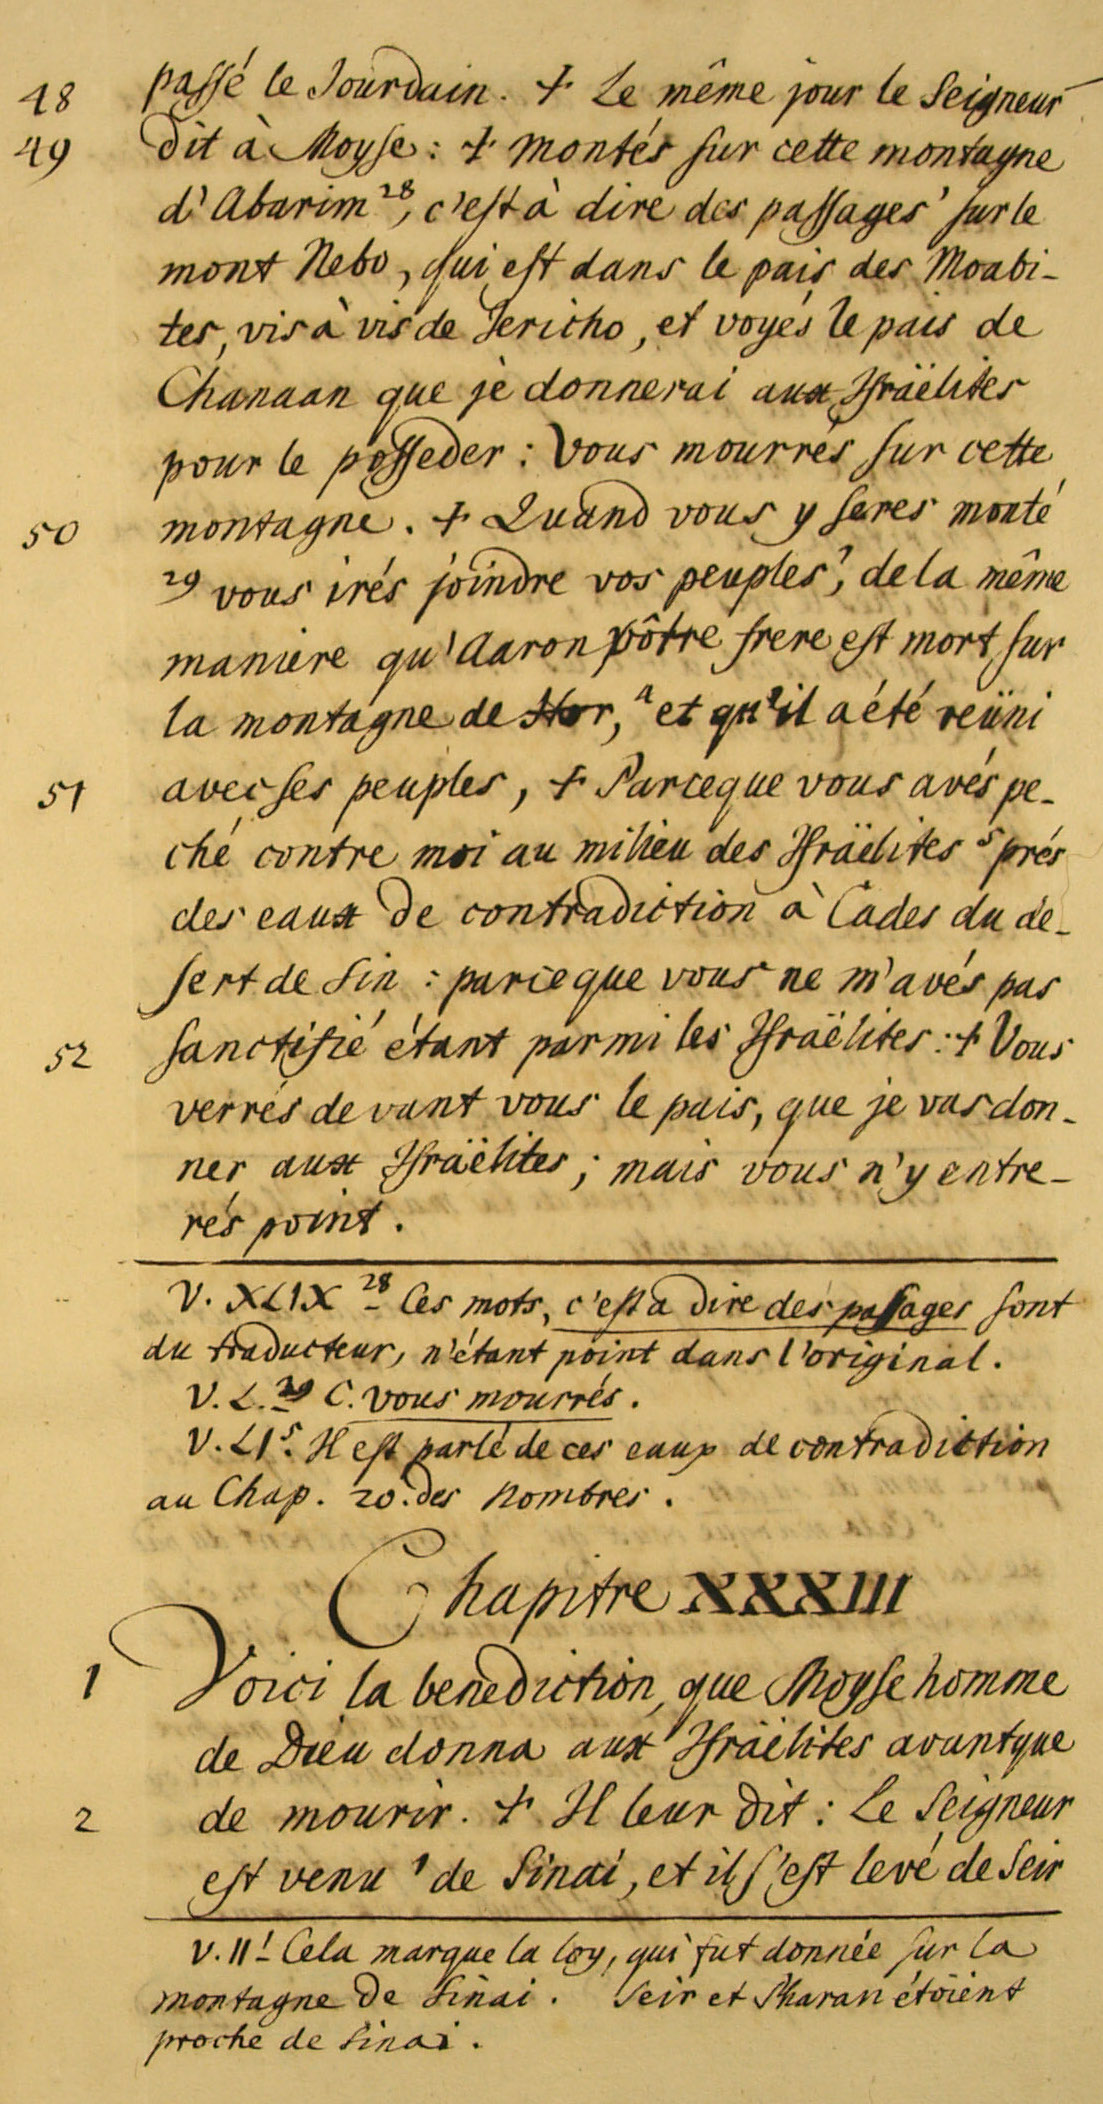 48 passé le Jourdain. + Le même jour le Seigneur
49 dit à Moyse : + montés sur cette montagne
d'Abarim ²⁸, c'est à dire des passages' sur le
mont Nebo, qui est dans le pais des Moabi-
tes, vis à vis de Jericho, et voyés le pais de
Chanaan que je donnerai aux Israëlites
pour le posseder : Vous mourrés sur cette
50 montagne. + Quand vous y seres monté
²⁹ vous irés joindre vos peuples', de la même
maniere qu'Aaron vôtre frere est mort sur
la montagne de Hor, ⁴ et qu'il a été reüni
51 avec ses peuples, + Parceque vous avés pe-
ché contre moi au milieu des Israëlites ⁵ prés
des eaux de contradiction à Cades du de-
sert de Sin : parceque vous ne m'avés pas
52 sanctifié étant parmi les Israëlites : + Vous
verrés devant vous le pais, que je vas don-
ner aux Israëlites ; mais vous n'y entre-
rés point.
V. XLIX ²⁸ Ces mots, c'est a dire des passages sont
du traducteur, n'étant point dans l'original.
V. L. ²⁹ C. vous mourrés.
V. LI ⁵. Il est parlé de ces eaux de contradiction
au Chap. 20. des Nombres.
Chapitre XXXIII
1 Voici la benediction, que Moyse homme
de Dieu donna aux Israëlites avantque
2 de mourir. + Il leur dit : Le Seigneur
est venu ¹ de Sinai, et il s'est levé de Seir
V. II ¹ Cela marque la loy, qui fut donnée sur la
montagne de Sinai. Seir et Pharan étoient
proche de Sinai.